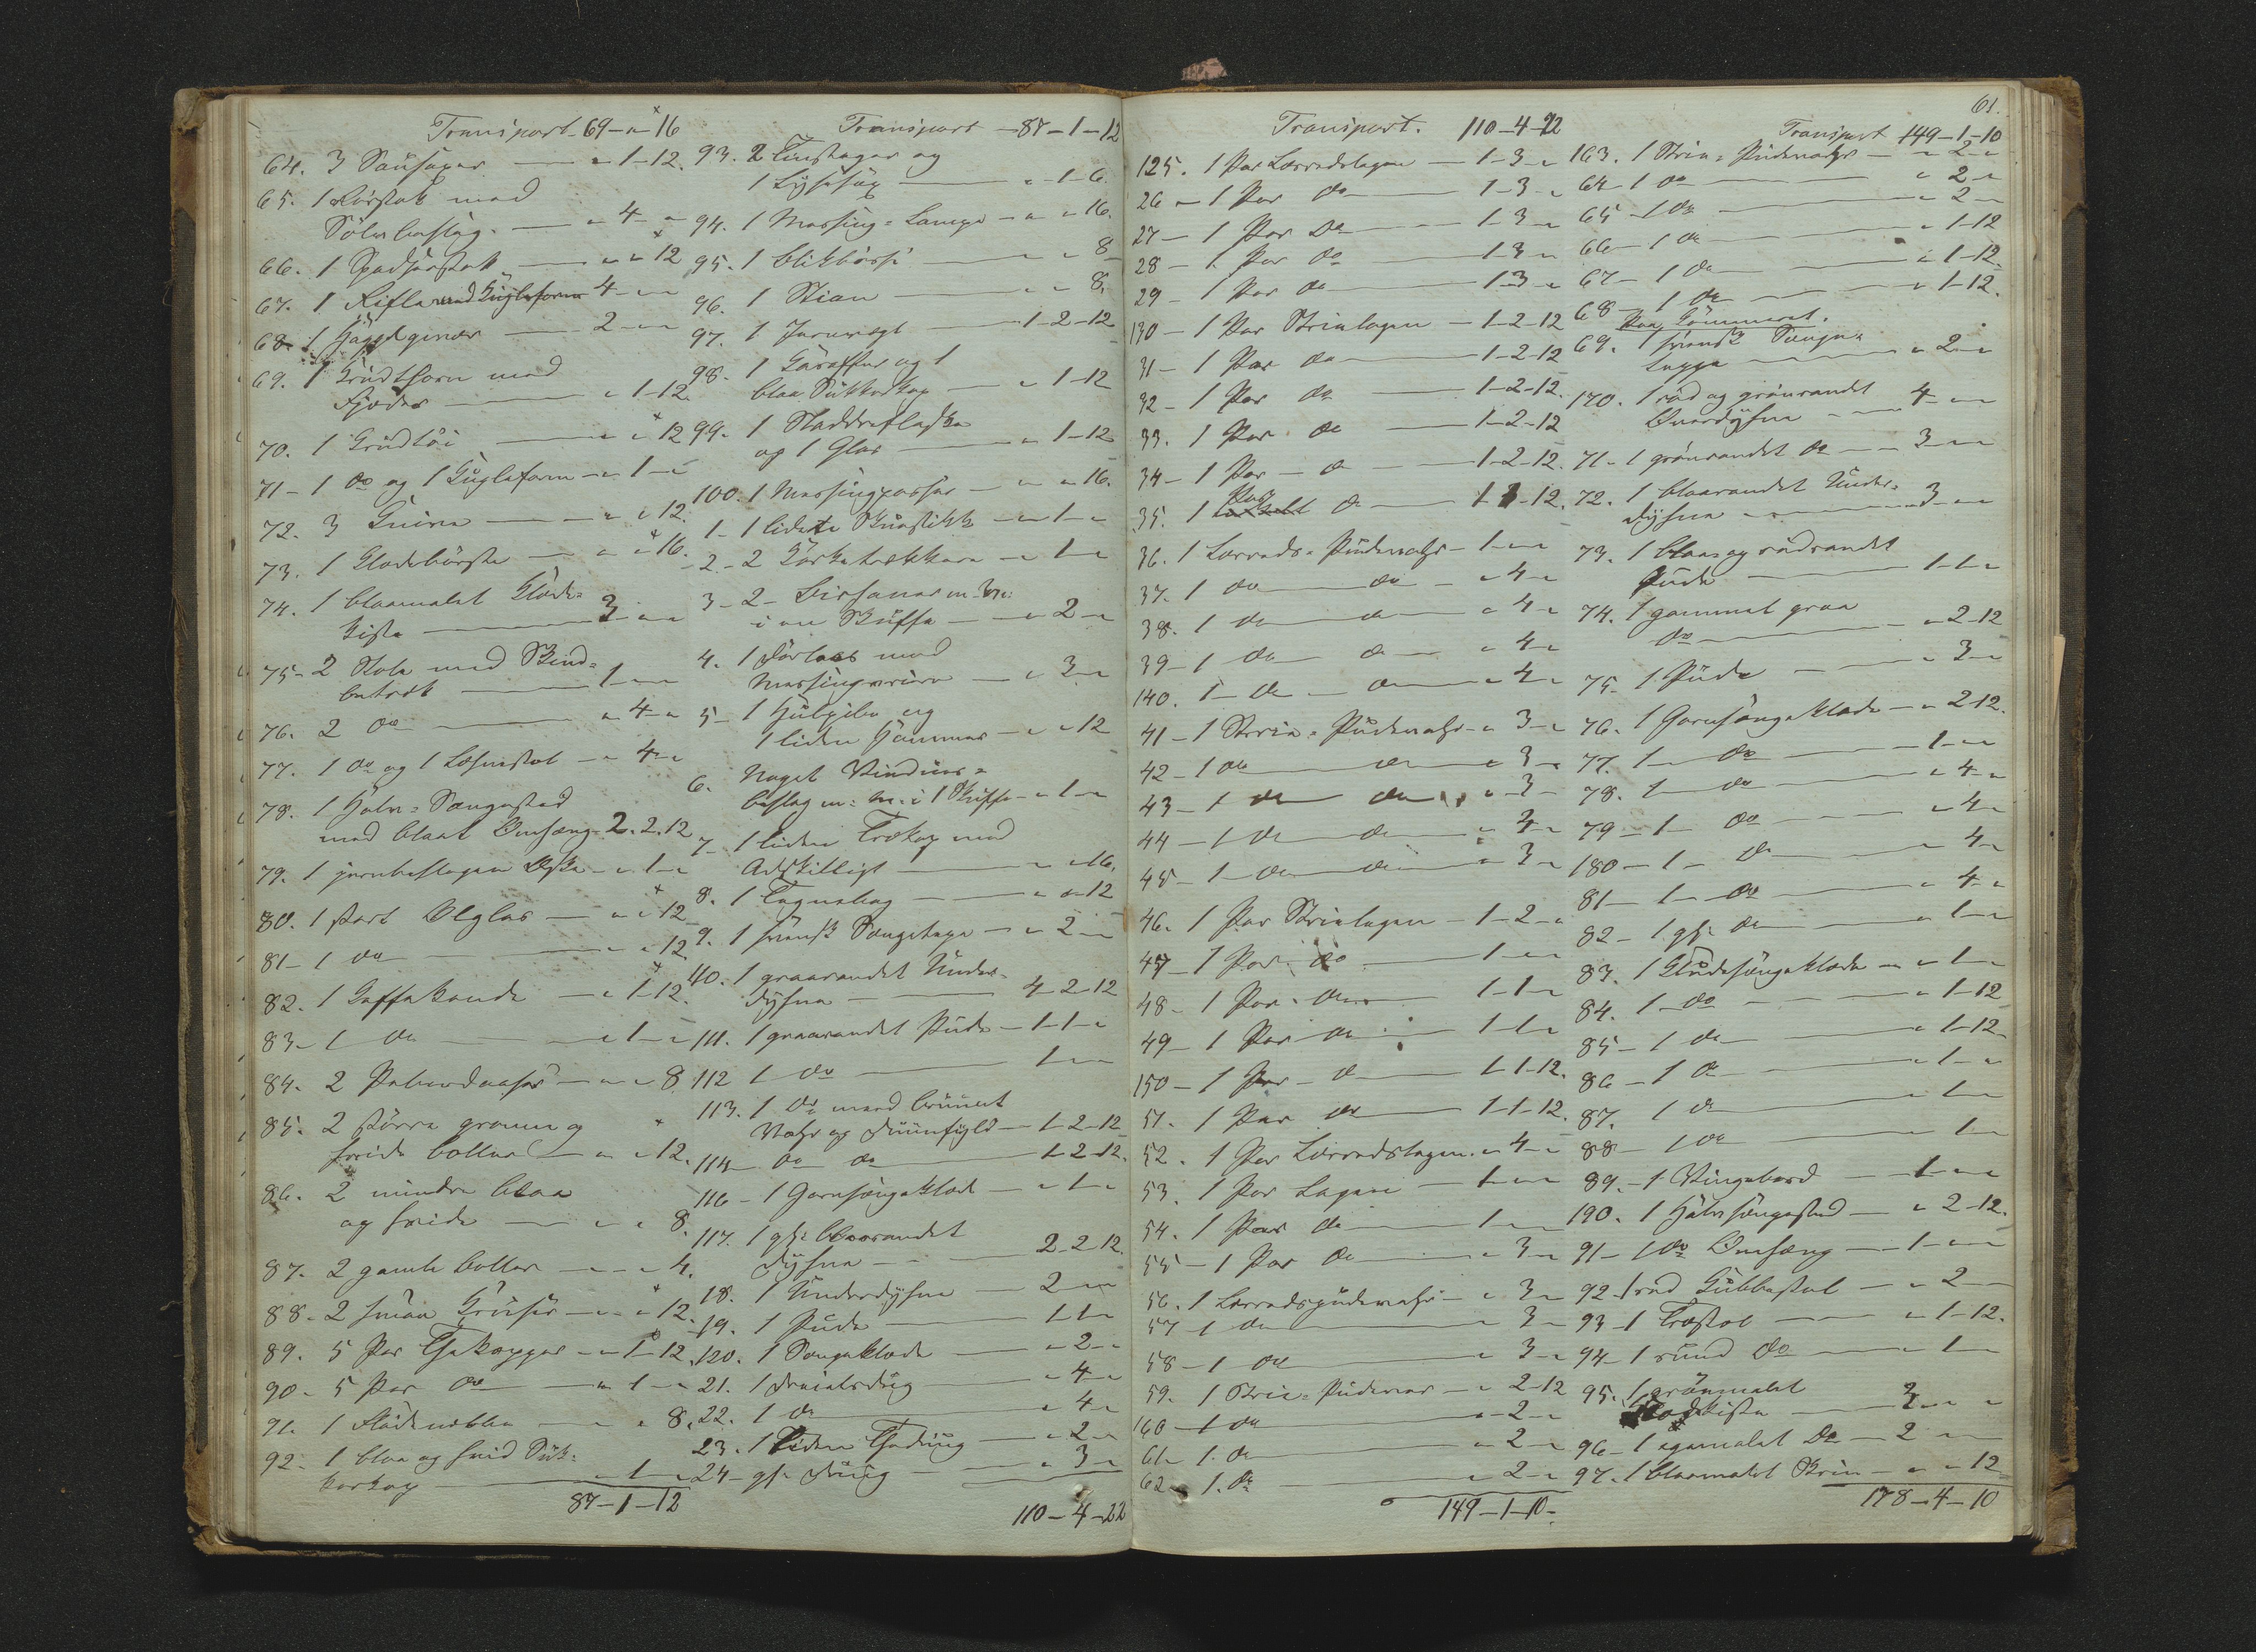 Transport 69 - " - 16
64. 3 " - 1 - 12.
65. 1 Rørstok med
Sølvbeslag. " - 4 - "
66. 1 Spadsérstok " - " - 12
67. 1 Rifle med Kugleform 4 - " - "
68. 1 2 - " - "
69. 1 Krudthorn med
Fjeder " - 1 - 12.
70. 1 Krudtöi " - " - 12
71 - 1 do og 1 Kugleform " - 1 - "
72. 3 Knive " - " - 12.
73. 1 Klædebörste " - " - 16.
74. 1 blaamalet Klæde-
kiste 3 - " - "
75 - 2 Stole med Skind-
betræk 1 - " - "
76. 2 do " - 4 - "
77. 1 do og 1 Lænestol " - 4 - "
78. 1 Halv-Sengested
med blaat Omhæng 2. 2. 12
79. 1 jernbeslagen Æske " - 1 - "
80. 1 stort Ølglas " - " - 12
81 - 1 do " - " - 12
82. 1 Kaffekande " - 1 - 12.
83 - 1 do " - 1 - "
84. 2 " - " - 8.
85. 2 större grønne og
hvide boller " - " - 12.
86. 2 mindre blaa
og hvide " - " - 8.
87. 2 gamle boller " - " - 4.
88. 2 smaa Kruser " - " - 12.
89. 5 Par Thekopper " - 1 - 12.
90 - 5 Par do " - 1 - "
91. 1 Flödenebbe " - " - 8.
92. 1 blaa og hvid Suk-
kerkop " - 1 - "
87 - 1 - 12
Transport - 87 - 1 - 12
93. 2 Linstager og
1 Lysesax " - 1 - 6.
94. 1 Messing-Lampe " - " - 16.
95. 1 Blikbösse " - " - 8
96. 1 Stien " - " - 8.
97. 1 Jernvægt 1 - 2 - 12
98. 1 Karaffel og 1
blaa Sukkerkop " - 1 - 12
99. 1 Pladdreflaske
og 1 Glas " - 1 - 12
100. 1 Messingpasser " - " - 16.
1 - 1 lidet " - 1 - "
2 - 2 Korketrækkere " - 1 - "
3 - 2 - m. M:
i en Skuffe " - 2 - "
4. 1 med
" - 3 - "
5 - 1 og
1 liden Hammer " - " - 12
6. Noget Vindues-
beslag m. M. i 1 Skuffe " - 1 - "
7 - 1 liden Trækop med
Adskilligt " - " - 16.
8. 1 Tegnebog " - " - 12
9. 1 Sengetæpe " - 2 - "
10. 1 graarandet Under-
dyhne 4 - 2 - 12
111. 1 graarandet Pude 1 - 1 - "
112 1 do 1 - " - "
113. 1 do med bruunt
Vahr og Duunfyld 1 - 2 - 12
114 do do 1 - 2 - 12.
116 - 1 Garnsengeklæde " - 1 - "
117. 1 gl: blaarandet
Dyhne 2 - 2 - 12.
18. 1 Underdyhne 2 - " - "
19. 1 Pude 1 - 1 - "
120. 1 Sengeklæde " - 2 - "
21. 1 Dreielsdug " - 4 - "
22. 1 do " - 4 - "
23. 1 liden Thedug " - 2 - "
24 - gl. Duug " - 3 - "
110 - 4 - 22
Transport. 110 - 4 - 22
125. 1 Par Lærredslagen 1 - 3 - "
26 - 1 Par do 1 - 3 - "
27 - 1 Par Do 1 - 3 - "
28 - 1 Par do 1 - 3 - "
29 - 1 Par do 1 - 3 - "
130 - 1 Par Strielagen 1 - 2 - 12
31 - 1 Par do 1 - 2 - 12
32 - 1 Par do 1 - 2 - 12.
33. 1 Par do 1 - 2 - 12
34 - 1 Par do 1 - 2 - 12.
35. 1 Par enkelt do 1 - 1 - 12.
36. 1 Lærreds-Pudevahr 1 - " - "
37. 1 do do " - 4 - "
38. 1 do do " - 4 - "
39 - 1 do do " - 4 - "
140. 1 do do " - 4 - "
41 - 1 Strie-Pudevahr " - 3 - "
42 - 1 do do " - 3 - "
43 - 1 do do " - 3 - "
44 - 1 do do " - 3 - "
45 - 1 do do " - 3 - "
46. 1 Par Strielagen 1 - 2 - "
47 - 1 Par do 1 - " - "
48 - 1 Par do 1 - 1 - "
49 - 1 Par do 1 - 1 - "
150 - 1 Par do 1 - 1 - 12.
51. 1 Par do 1 - 1 - 12.
52. 1 Par Lærredslagen. " - 4 - "
53. 1 Par Lagen 1 - " - "
54. 1 Par do 1 - " - "
55 - 1 Par do " - 3 - "
56. 1 Lærredspudevahr " - 3 - "
57 - 1 do " - 3 - "
58 - 1 do " - 3 - "
59. 1 Strie-Pudevar " - 2 - 12
160 - 1 do " - 2 - "
61 - 1 do " - 2 - "
62 - 1. do " - 2 - "
149 - 1 - 10.
61.
Transport 149 - 1 - 10
163. 1 Strie-Pudevahr " - 2 - "
64 - 1 do " - 2 - "
65 - 1 do " - 2 - "
66 - 1 do " - 1 - 12
67 - 1 do " - 1 - 12.
68 - 1 do " - 1 - 12.
Paa Kammeret.
69. 1 Senge-
" - 2 - "
170. 1 röd og grönrandet
Overdyhne 4 - " - "
71 - 1 grönrandet do 3 - " - "
72. 1 blaarandet Under-
dyhne 3 - " - "
73. 1 blaa- og rödrandet
Pude 1 - 1 - "
74. 1 gammel graa
do " - 2 - 12
75. 1 Pude " - 3 - "
76. 1 Garnsengeklæde " - 2 - 12.
77. 1 do 1 - " - "
78. 1 do " - 4 - "
79 - 1 do " - 4 - "
180 - 1 - do " - 4 - "
81 - 1 - do " - 4 - "
82 - 1 gl: do " - 1 - "
83. 1 Kludesengeklæde " - 1 - "
84. 1 do " - 1 - 12
85 - 1 do " - 1 - 12
86 - 1 do " - 1 - "
87. 1 do " - 1 - "
88 - 1 do " - 1 - "
89. - 1 Vingebord 1 - " - "
190. 1 Halvsengested " - 2 - 12.
91 - 1 do Omhæng 1 - " - "
92 - 1 rød Kubbestol " - 2 - "
93 - 1 Træstol " - 1 - 12.
94 - 1 rund do " - 1 - "
95. 1 grönmalet
Klædekiste 3 - " - "
96 - 1 egemalet Do 2 - " - "
97. 1 blaamalet Skrin " - " - 12
178 - 4 - 10